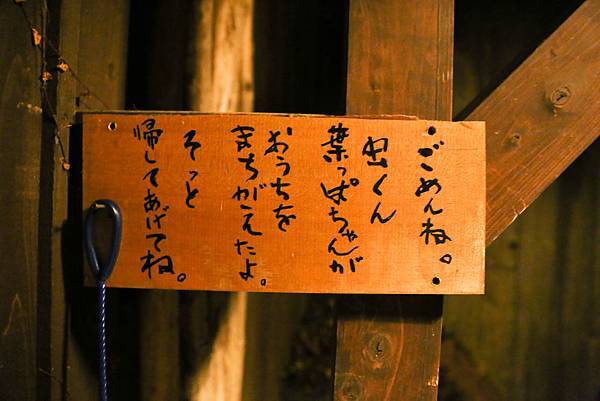 ・ごめんね。・
虫くん
葉っぱちゃんが
おうちを
まちがえたよ。
そっと
帰してあげてね。